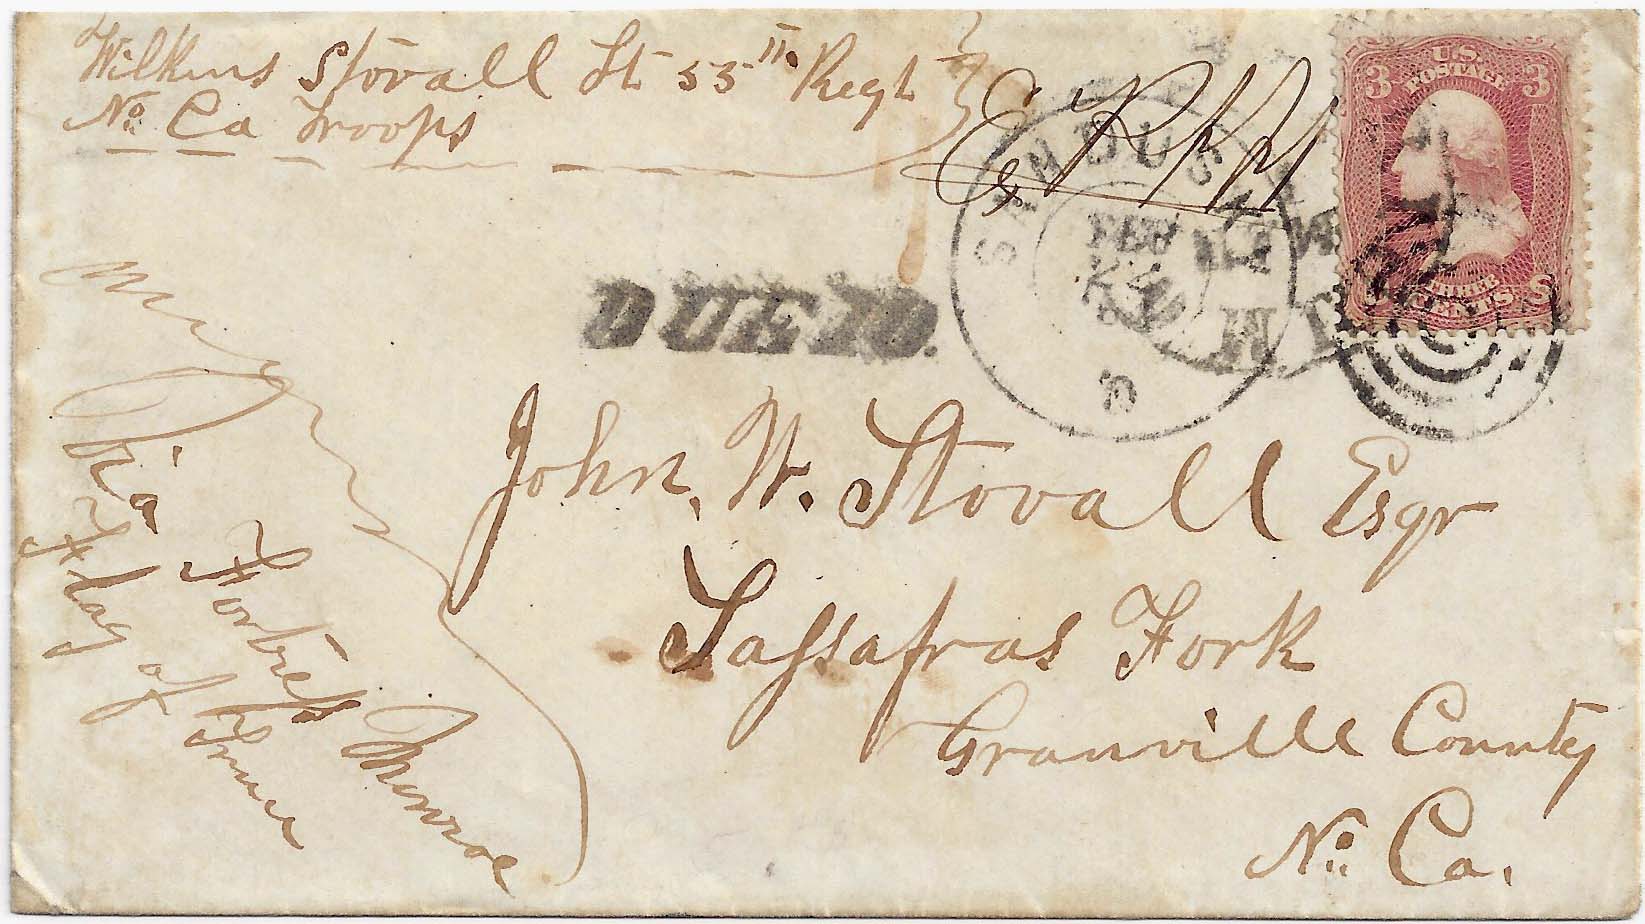 Wilkins Stovall Lt 55th Regt
No. Ca Troops
Ex
U.S.
POSTAGE
3 3
THREE
CENTS
SANDUSKY
FEB
O
RICHMOND
DUE 10.
Via Fortress Monroe
Flag of Truce
John. W. Stovall Esqr
Sassafras Fork
Granville County
No. Ca.